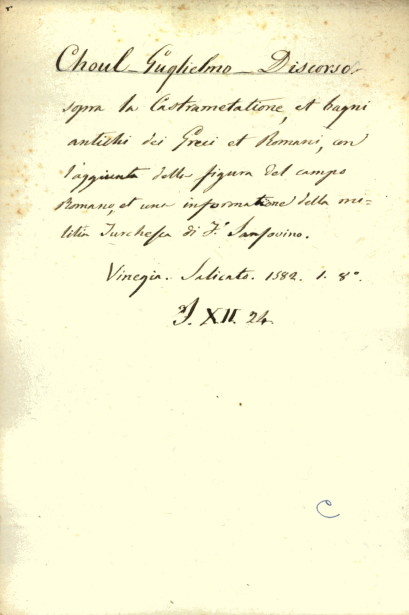 Choul - Guglielmo - Discorso
sopra la Castrametatione, et bagni
antichi dei Greci et Romani, con
l'aggiunta della figura del campo
Romano, et una informatione della mi-
litia Turchesca di F.º Sansovino.
Vinegia. Salicato. 1582. 1. 8º.
J. XII. 24
C